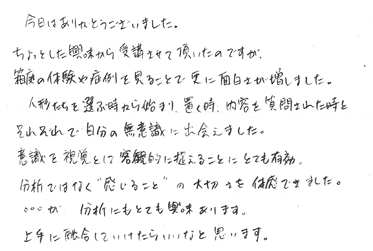 今日はありがとうございました。
ちょっとした興味から受講させて頂いたのですが、
箱庭の体験や症例を見ることで更に面白さが増しました。
人形たちを選ぶ時から始まり、置く時、内容を質問された時と
それぞれで自分の無意識に出会えました。
意識を視覚とは客観的に捉えることにとても有効。
分析ではなく“感じること”の大切さを体感できました。
○○○が 分析にもとても興味あります。
上手に融合していけたらいいなと思います。